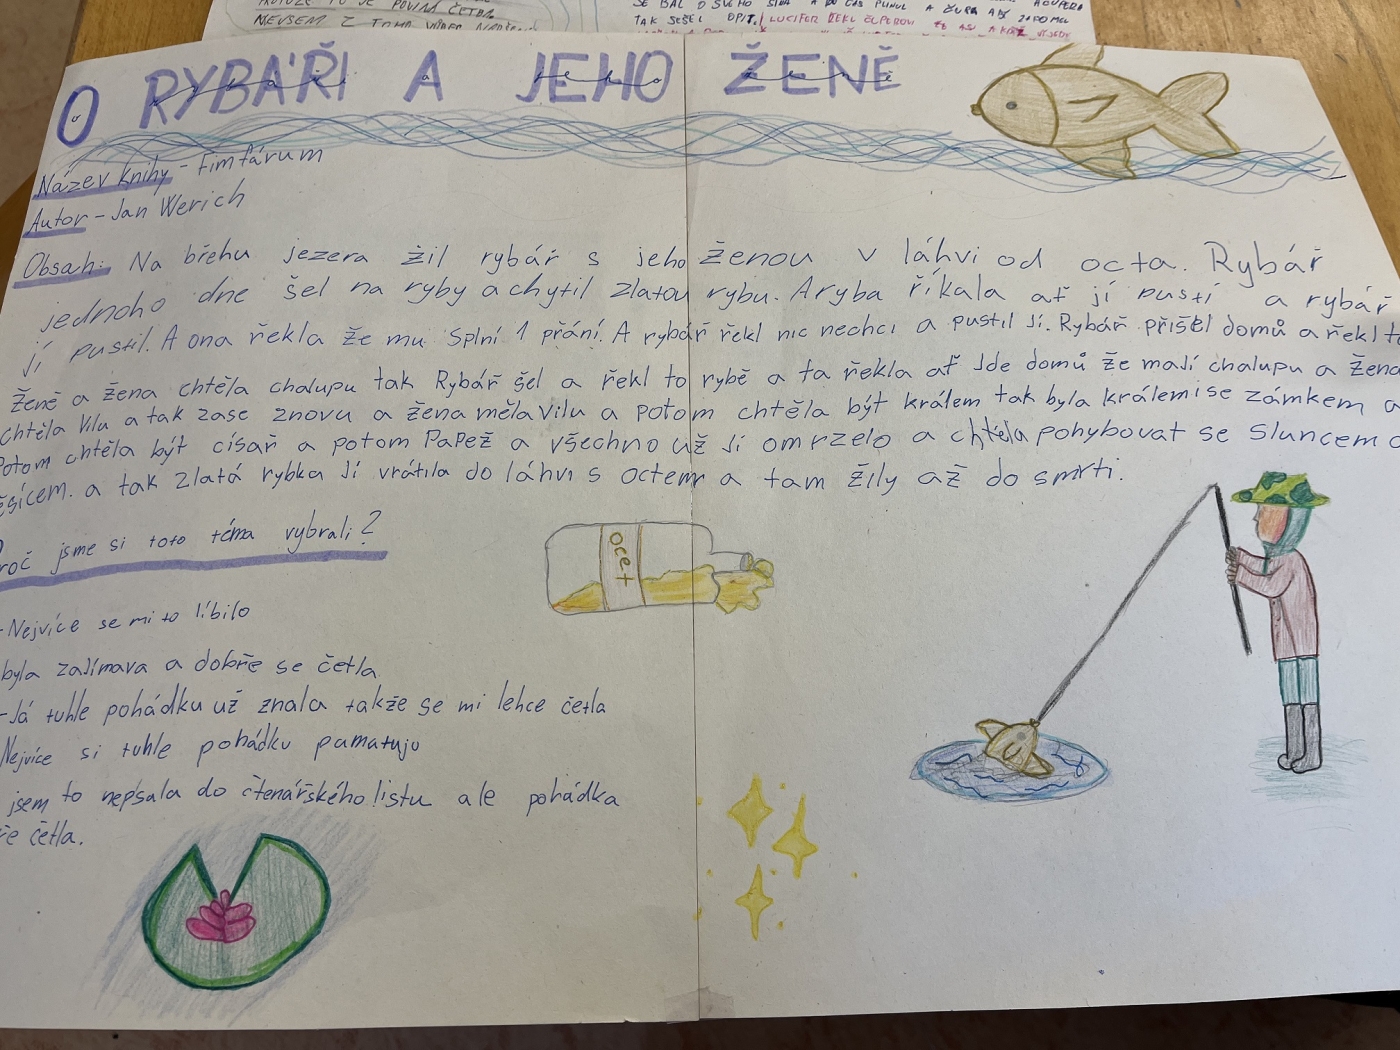 MEVSEM Z TOHO VÝBĚR
TAK SEŠEL OPIT. LUCIFER ŘEKL
O RYBÁŘI A JEHO ŽENĚ
Název knihy - Fimfárum
Autor - Jan Werich
Obsah: Na břehu jezera žil rybář s jeho ženou v láhvi od octa. Rybář
jednoho dne šel na ryby a chytil zlatou rybu. A ryba říkala ať jí pustí a rybář
jí pustil. A ona řekla že mu splní 1 přání. A rybář řekl nic nechci a pustil jí. Rybář přišel domů a řekl to
ženě a žena chtěla chalupu tak Rybář šel a řekl to rybě a ta řekla ať Jde domů že mají chalupu a žena
chtěla Vilu a tak zase znovu a žena měla vilu a potom chtěla být králem tak byla králem i se zámkem a
Potom chtěla být císař a potom Papež a všechno už Jí omrzelo a chtěla pohybovat se sluncem a
ěsícem. a tak zlatá rybka Jí vrátila do láhvi s octem a tam žily až do smrti.
roč jsme si toto téma vybrali?
ocet
- Nejvíce se mi to líbilo
byla zajímava a dobře se četla
- Já tuhle pohádku už znala takže se mi lehce četla
Nejvíce si tuhle pohádku pamatuju
jsem to nepsala do čtenářského listu ale pohádka
ře četla.